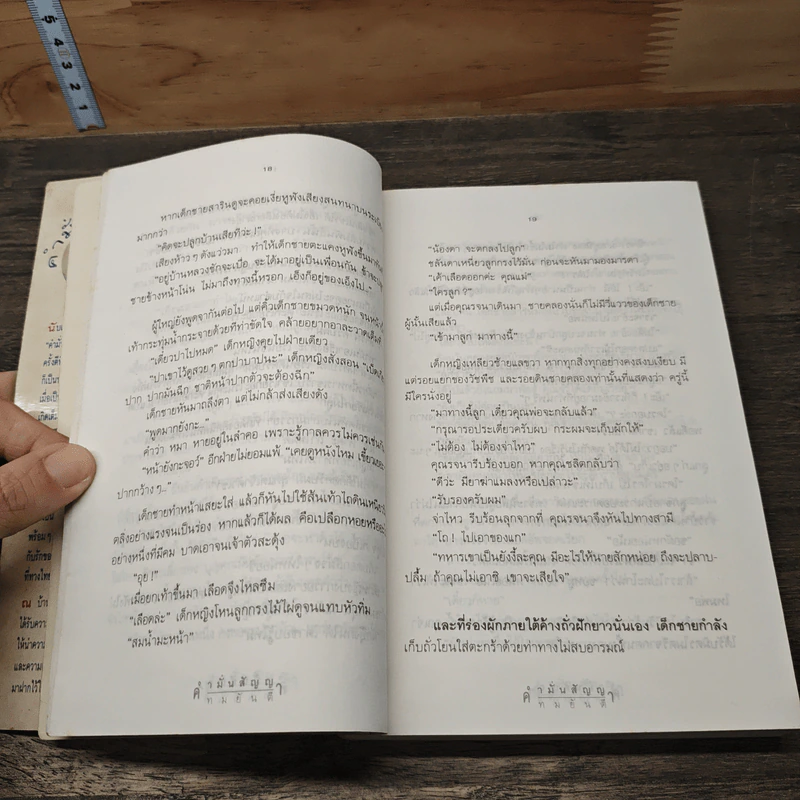 5 4 3 2 1
๑๘
หากเด็กชายสารินดูจะคอยเงี่ยหูฟังเสียงสนทนาบน
มากกว่า
"คิดจะปลูกบ้านเสียที่ว่ะ!"
เสียงห้าว ๆ ดังแว่วมา ทำให้เด็กชายตะแคงหูฟังขึ้นมาทันที
"อยู่บ้านหลวงชักจะเบื่อ จะได้มาอยู่เป็นเพื่อนกัน
ชายข้างหน้าโน่น ไม่มาถึงทางนี้หรอก เอ็งก็อยู่ของเอ็งไป.."
ผู้ใหญ่ยังพูดจากันต่อไป แต่คิ้วเด็กชายขมวดหนัก จน
เท้ากระทุ่มน้ำกระจายด้วยท่าขัดใจ คล้ายอยากอาละวาดเต็มที
"เดี๋ยวปาไปหมด" เด็กหญิงคุยไปฝ่ายเดียว
"ปาเขาไว้ดูสวย ๆ ตกปาบาปนะ" เด็กหญิงสั่งสอน
ปาก ปากมันฉีก ชาติหน้าปากตัวจะต้องฉีก"
เด็กชายหันมาถลึงตา แต่ไม่กล้าส่งเสียงดัง
"พูดมากยังกะ.."
คำว่า หมา หายอยู่ในลำคอ เพราะรู้กาลควรไม่ควรเช่นกัน
"หน้ายังกะจอว์" อีกฝ่ายไม่ยอมแพ้ "เคยดูหนังไหม เขี้ยว
ปากกว้าง ๆ.."
เด็กชายทำหน้าแสยะใส่ แล้วก็หันไปใช้ส้นเท้าไถดินเหนียว
ตลิ่งอย่างแรงจนเป็นร่อง หากแล้วก็ได้ผล คือเปลือกหอยหรือ
อย่างหนึ่งที่มีคม บาดเอาจนเจ้าตัวสะดุ้ง
"อุย!"
เมื่อยกเท้าขึ้นมา เลือดจึงไหลซึม
"เลือดล่ะ" เด็กหญิงโหนลูกกรงไม้ไผ่ดูจนแทบหัวทิ่ม
"สมน้ำมะหน้า"
คำมั่นสัญญา
ทมยันตี
๑๙
"น้องดา จะตกลงไปลูก"
ชลันดาเหนี่ยวลูกกรงไว้มั่น ก่อนจะหันมามองมารดา
"เค้าเลือดออกค่ะ คุณแม่"
"ใครลูก?"
แต่เมื่อคุณรจนาเดินมา ชายคลองนั้นก็ไม่มีวี่แววของเด็กชาย
ผู้นั้นเสียแล้ว
"เข้ามาลูก มาทางนี้"
เด็กหญิงเหลียวซ้ายแลขวา หากทุกสิ่งทุกอย่างคงสงบเงียบ มี
แต่รอยแยกของวัชพืช และรอยดินชายคลองเท่านั้นที่แสดงว่า ครู่นี้
มีใครนั่งอยู่
"มาทางนี้ลูก เดี๋ยวคุณพ่อจะกลับแล้ว"
"กรุณารอประเดี๋ยวครับผม กระผมจะเก็บผักให้"
"ไม่ต้อง ไม่ต้องจ่าไหว"
คุณรจนารีบร้องบอก หากคุณชลิตกลับว่า
"ดีว่ะ มียาฆ่าแมลงหรือเปล่าวะ"
"รับรองครับผม"
จ่าไหว รีบร้อนลุกจากที่ คุณรจนาจึงหันไปทางสามี
"โถ! ไปเอาของแก"
"ทหารเขาเป็นยังงี้ละคุณ มีอะไรให้นายสักหน่อย ถึงจะปลาบ-
ปลื้ม ถ้าคุณไม่เอาซิ เขาจะเสียใจ"
และที่ร่องผักภายใต้ค้างถั่วฝักยาวนั่นเอง เด็กชายกำลัง
เก็บถั่วโยนใส่ตะกร้าด้วยท่าทางไม่สบอารมณ์
คำมั่นสัญญา
ทมยันตี